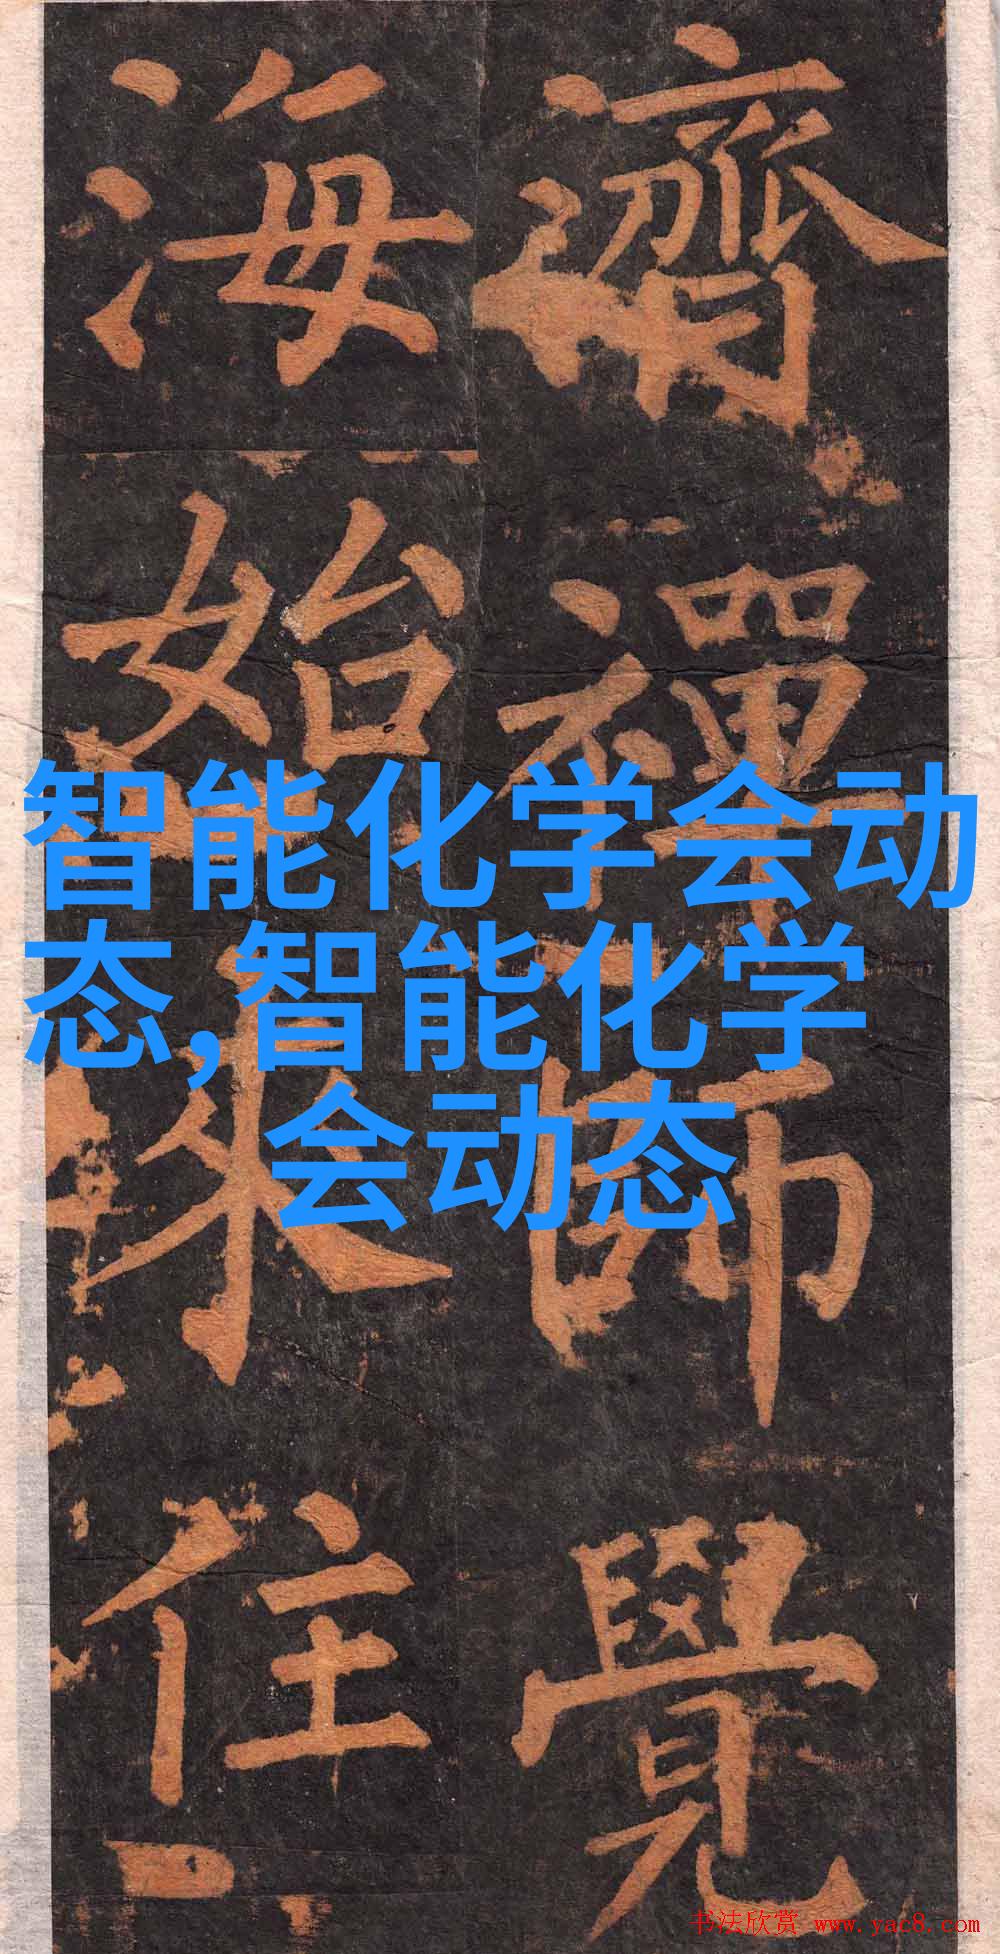 濟禪師覺
海始來住
智能化学会动
态,智能化学
会动态
书法欣赏 www.yac8.com